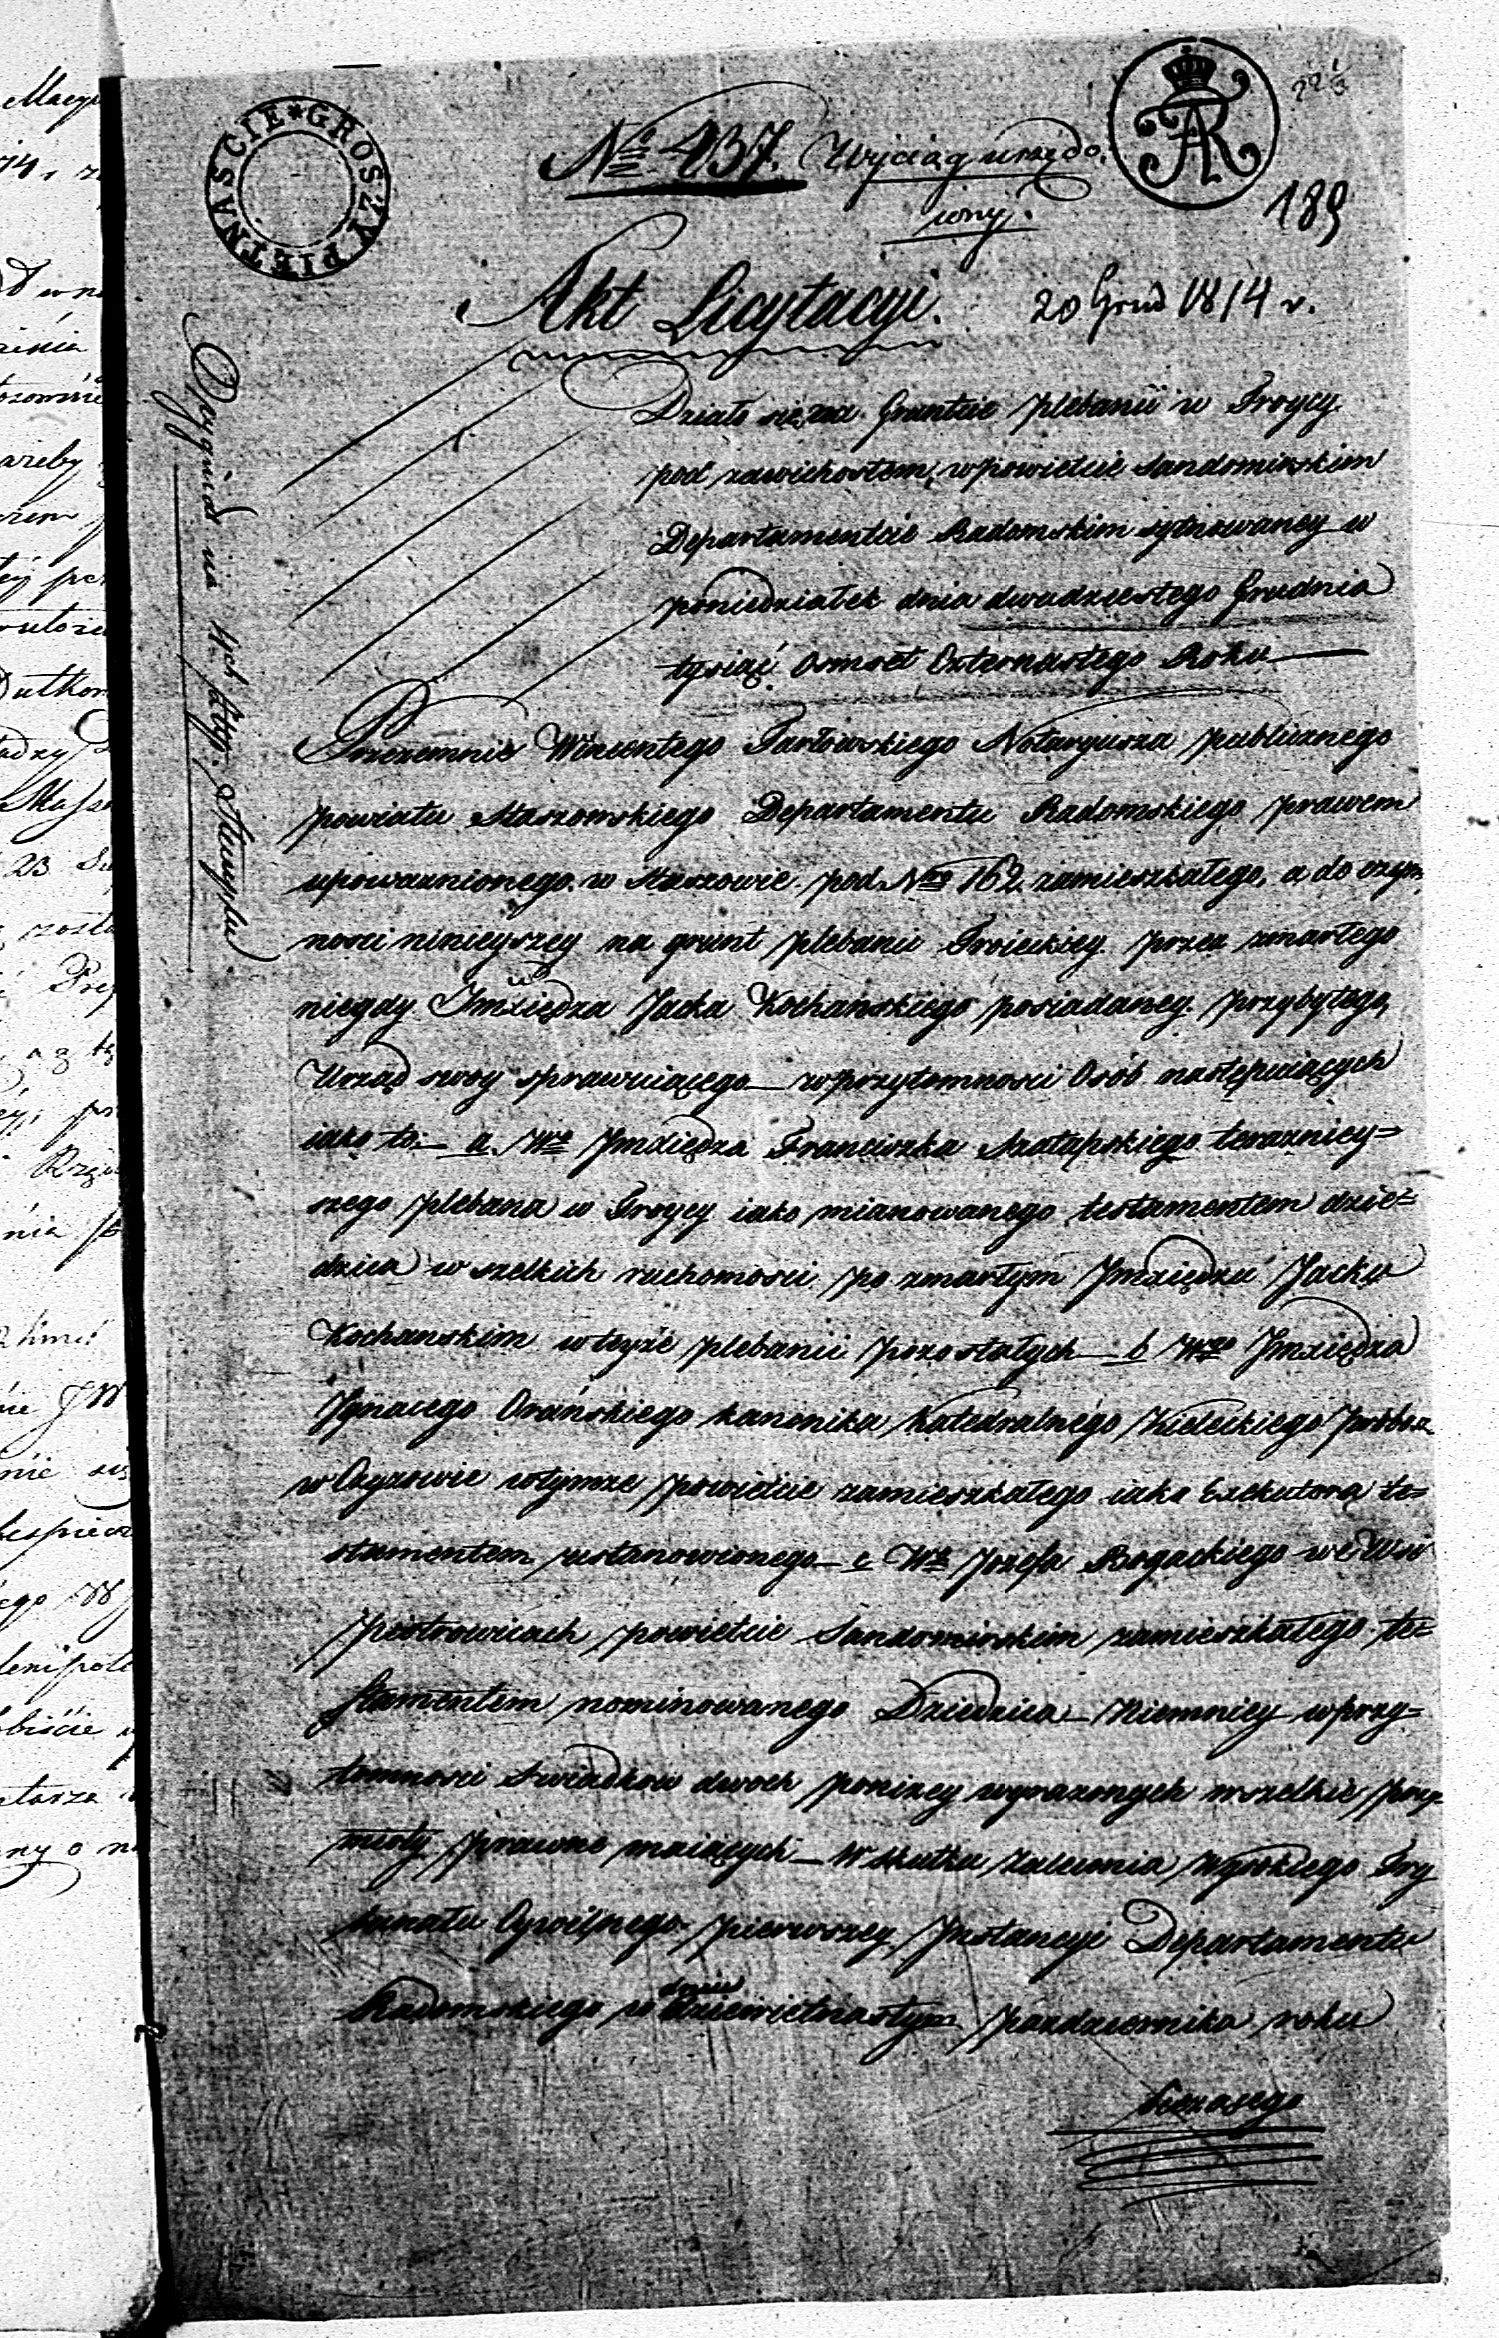 GROSZY PIĘTNAŚCIE
FAR
189
No 437. Wyciąg urzędo-
wny.
Akt Licytacyi. 20 Grud 1814 r.
Działo się na Gruntcie plebanii w Troycy
pod zawichostem, w powiecie Sandomirskim
Departamentcie Radomskim sytuowaney w
poniedziałek dnia dwudziestego Grudnia
tysiąc Osmset Czternastego Roku
Przezemnie Wincentego Tarłowskiego Notaryusza publicznego
powiatu Staszowskiego Departamentu Radomskiego prawem
upoważnionego w Staszowie pod Nro 162 zamieszkałego, a do czyn
nosci ninieyszey na grunt plebanii Troieckiey przez zmarłego
niegdy Jmxiędza Jacka Kochanskiego posiadaney przybyłego,
Urząd swoy sprawuiącego w przytomnosci Osób następuiących
iako to: a. Wo Jmxiędza Franciszka terazniey=
szego plebana w Troycy iako mianowanego testamentem dzie=
dzica wszelkich ruchomosci po zmarłym Jmxiędzu Jacku
Kochanskim w teyże plebanii pozostałych b Wgo Jmxiędza
Jgnacego Kanonika Katedralnego Kieleckiego
w Ożarowie w tymże powiecie zamieszkałego iako Exekutora te=
stamentem ustanowionego c Wo Jozefa Rogackiego we Wsi
piotrowicach powiecie Sandomirskim zamieszkałego te=
stamentem nominowanego Dziedzica Niemniey w przy=
tomnosci Swiadkow dwoch poniżey wyrażonych wszelkie przy
mioty prawne maiących W skutku zalecenia Wysokiego Try
bunału Cywilnego pierwszey Jnstancyi Departamentu
Radomskiego w dniu dziewietnastym pazdziernika roku
bieżącego